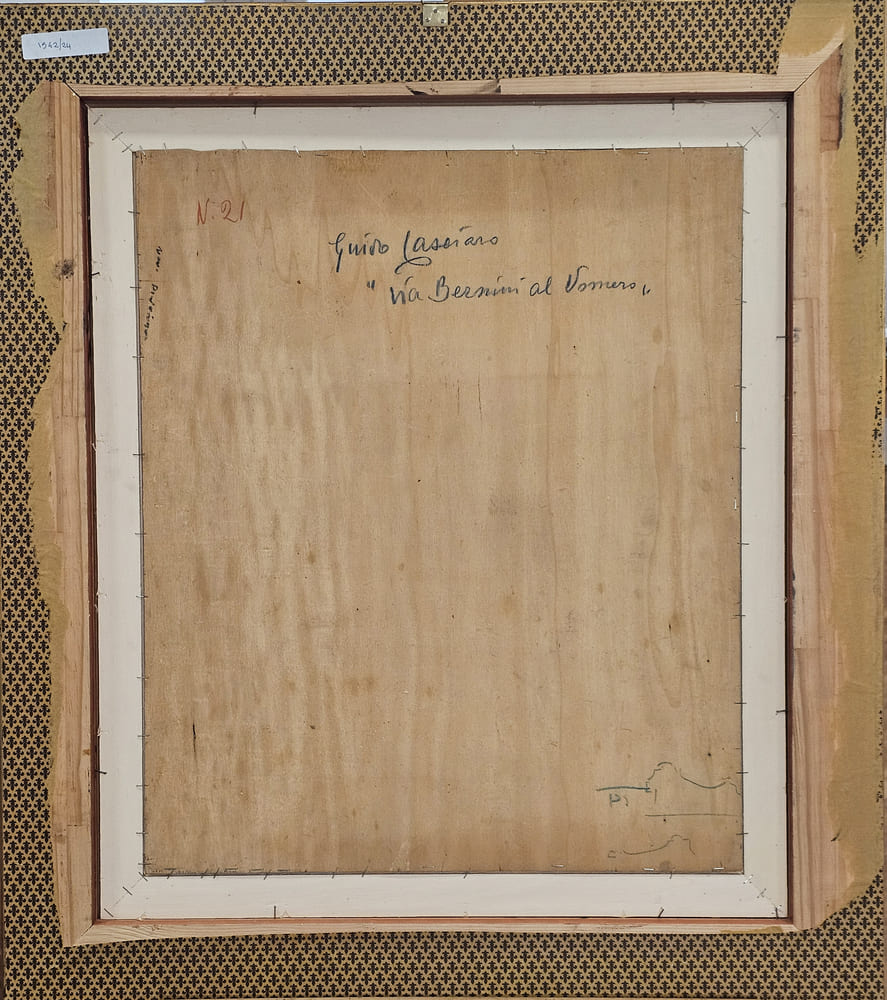 1542/24
N. 21
Guido Casciaro
" Via Bernini al Vomero "